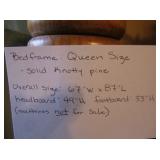 Bedframe Queen Size
- solid Knotty pine
Overall Size: 67"W x 87"L
headboard: 49"H footboard 33"H
(mattress not for Sale)